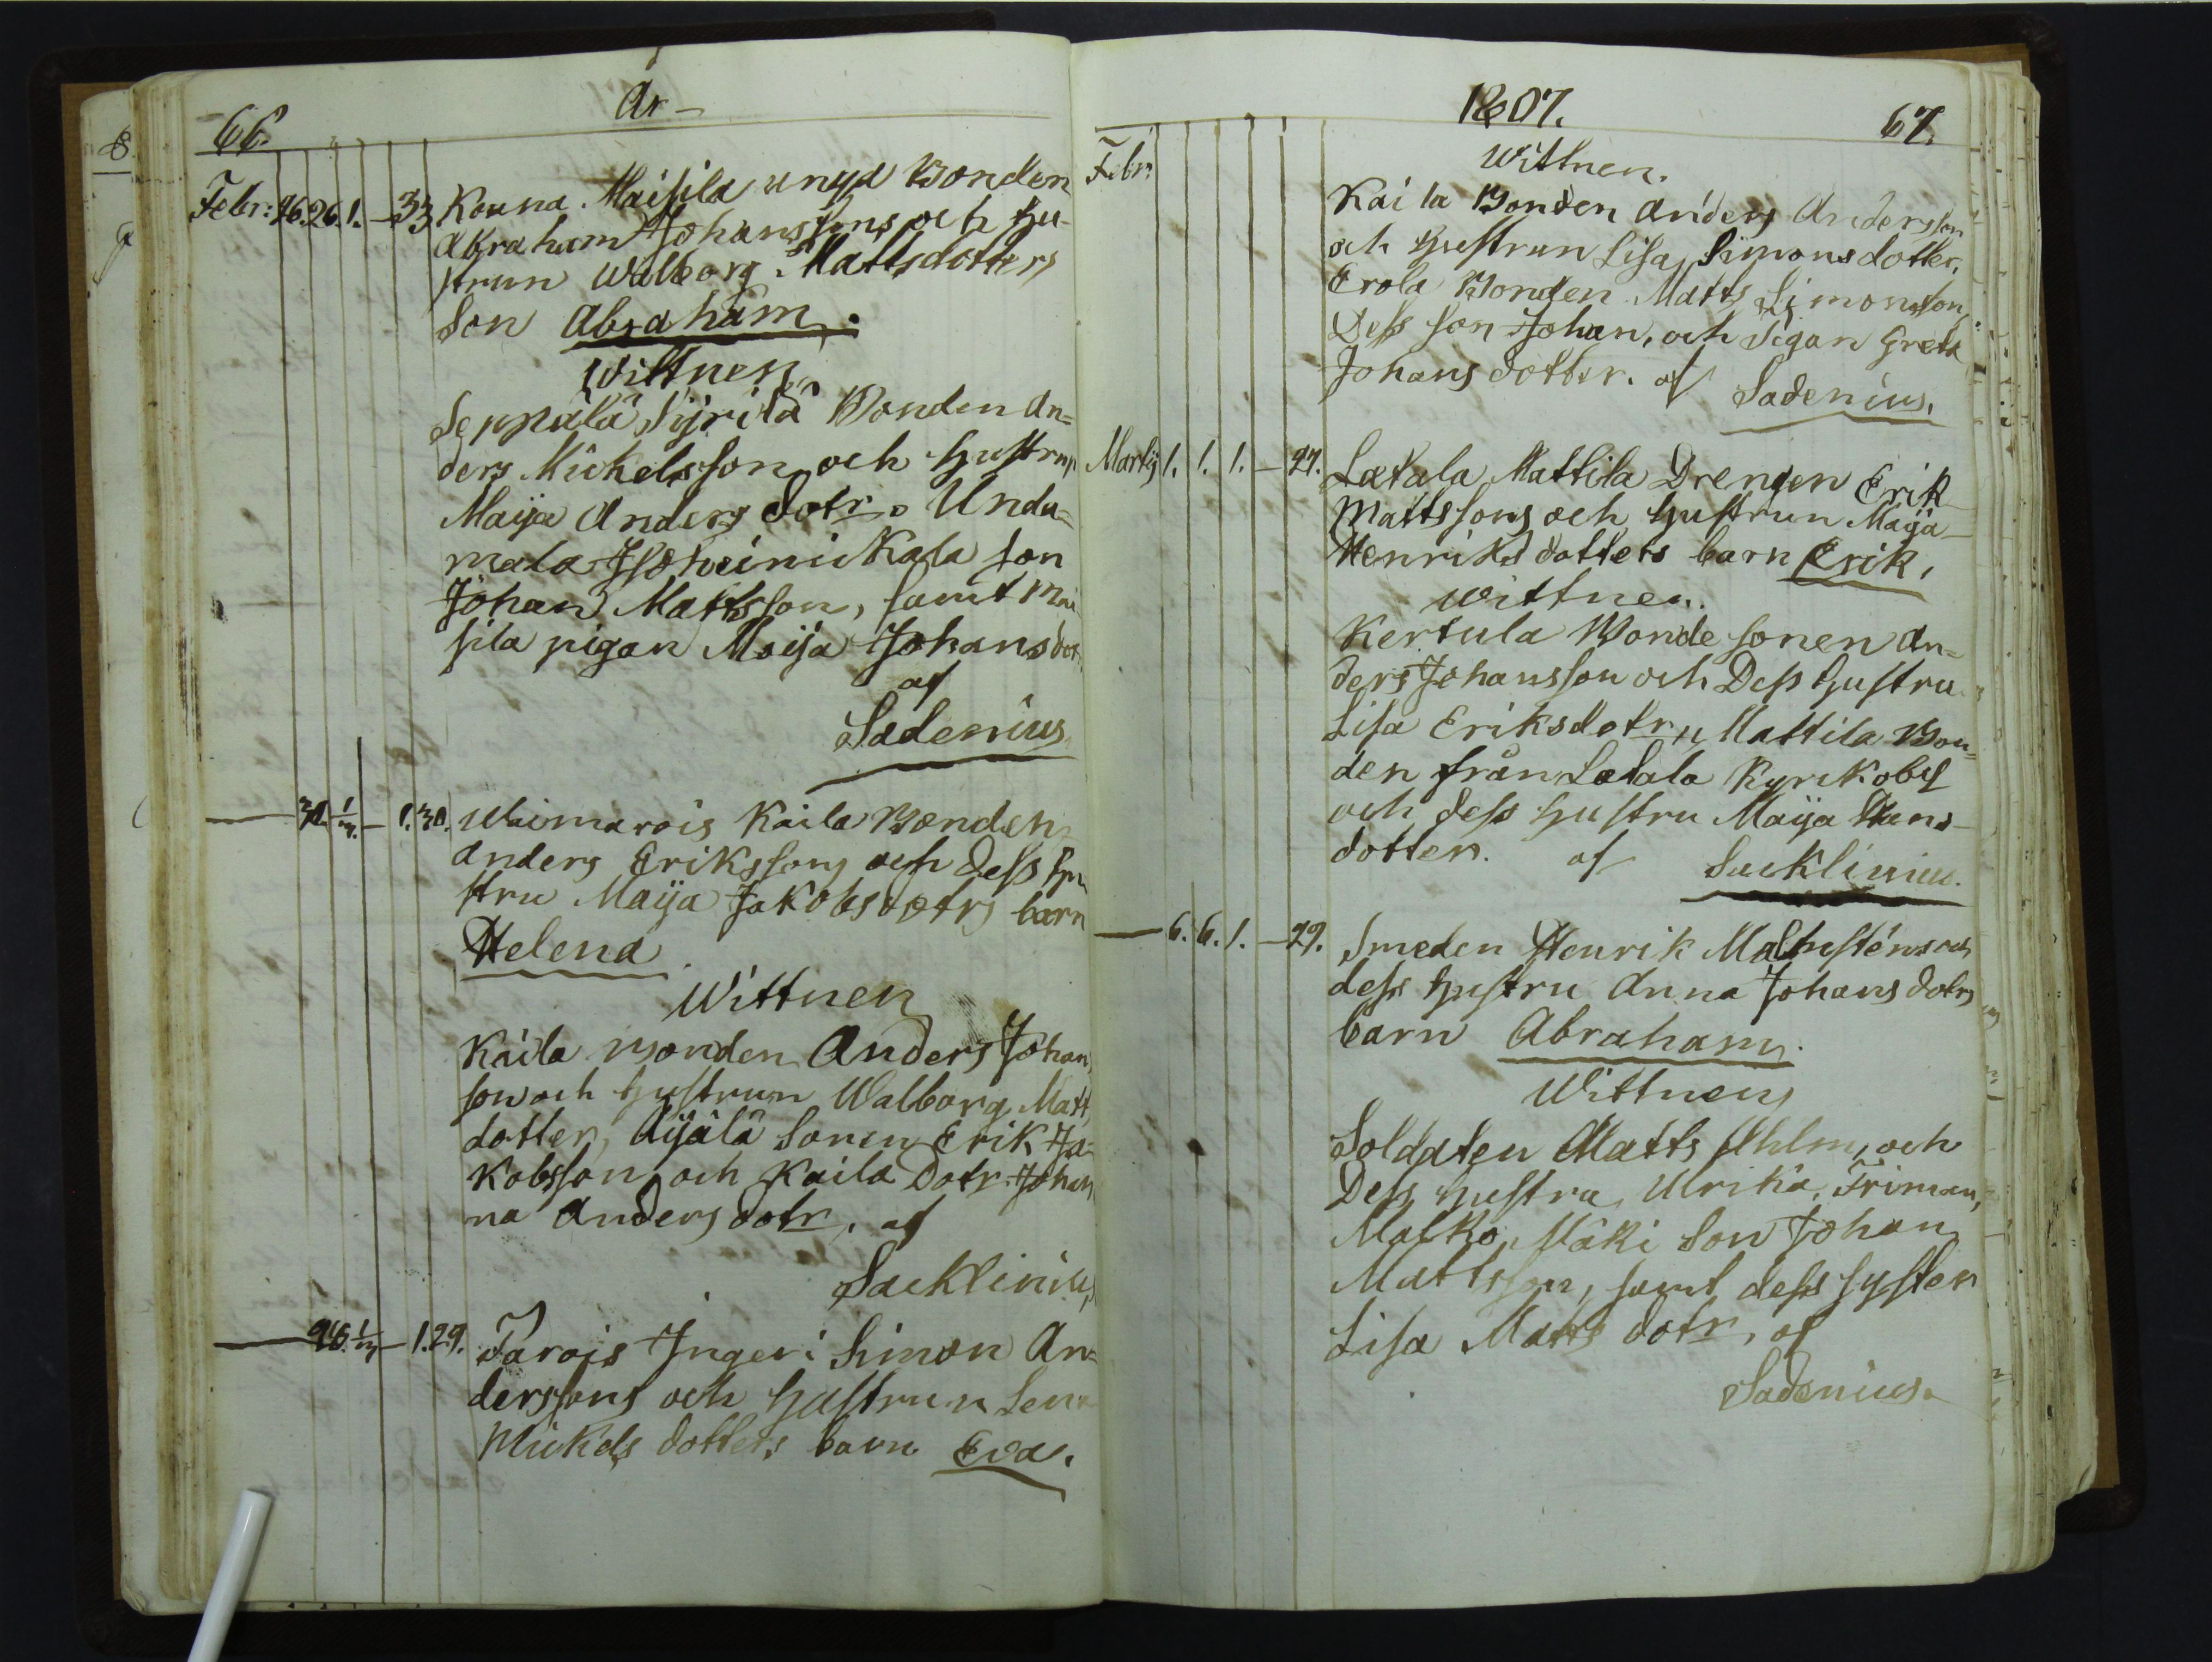 66.
År
Febr: 26. 26. 1. — 33 Kouna Maisila unga Bonden
Abraham Johanssons och Hu-
strun Walborg Mattsdotters
Son Abraham.
Wittnen
Seppälä Syrilä Bonden An=
ders Mickelsson och Hustrun
Maija Anders dotr. Unda=
mala son
Johan Mattsson, samt Mai
sila pigan Maija Johans dotr.
af
Sadenius
1. 30. Waimarois Kaila Bonden
Anders Erikssons och dess Hu
stru Maija Jakobsdotrs barn
Helena
Wittnen
Kaila Bonden Anders Johan
son och Hustrun Walborg Matts
dotter, Äijälä Sonen Erik Ja=
kobsson och Kaila Dotr. Johan
na Anders dotr. af
Sacklinius
1. 29. Tarois Ingeri Simon An=
derssons och Hustrun Lena
Mickels dotters barn Eva.
1807.
67.
Febr:
Wittnen.
Kaila Bonden Anders Andersson
och Hustrun Lisa Simonsdotter,
Erola Bonden Matts Simonsson,
Dess son Johan, och Pigan Greta
Johans dotter. af Sadenius.
Martij 1. 1. 1. — 27. Latala Mattila Drengen Erik
Mattssons och Hustrun Maija
Henriks dotters barn Erik,
Wittnen.
Kertula Bonde sonen An=
ders Johansson och Dess Hustru
Lisa Eriksdotr, Mattila Bon=
den från Latala Kyrkoby
och dess Hustru Maija Hans
dotter. af Sacklinius.
— 6. 6. 1. — 29. Smeden Henrik Malmsténs och
dess Hustru Anna Johans dotrs
barn Abraham.
Wittnen
Soldaten Matts Ahlm, och
Dess Hustru Ulrika Friman,
Malko Mäki Son Johan
Mattsson, samt dess syster
Lisa Matts dotr, af
Sadenius.